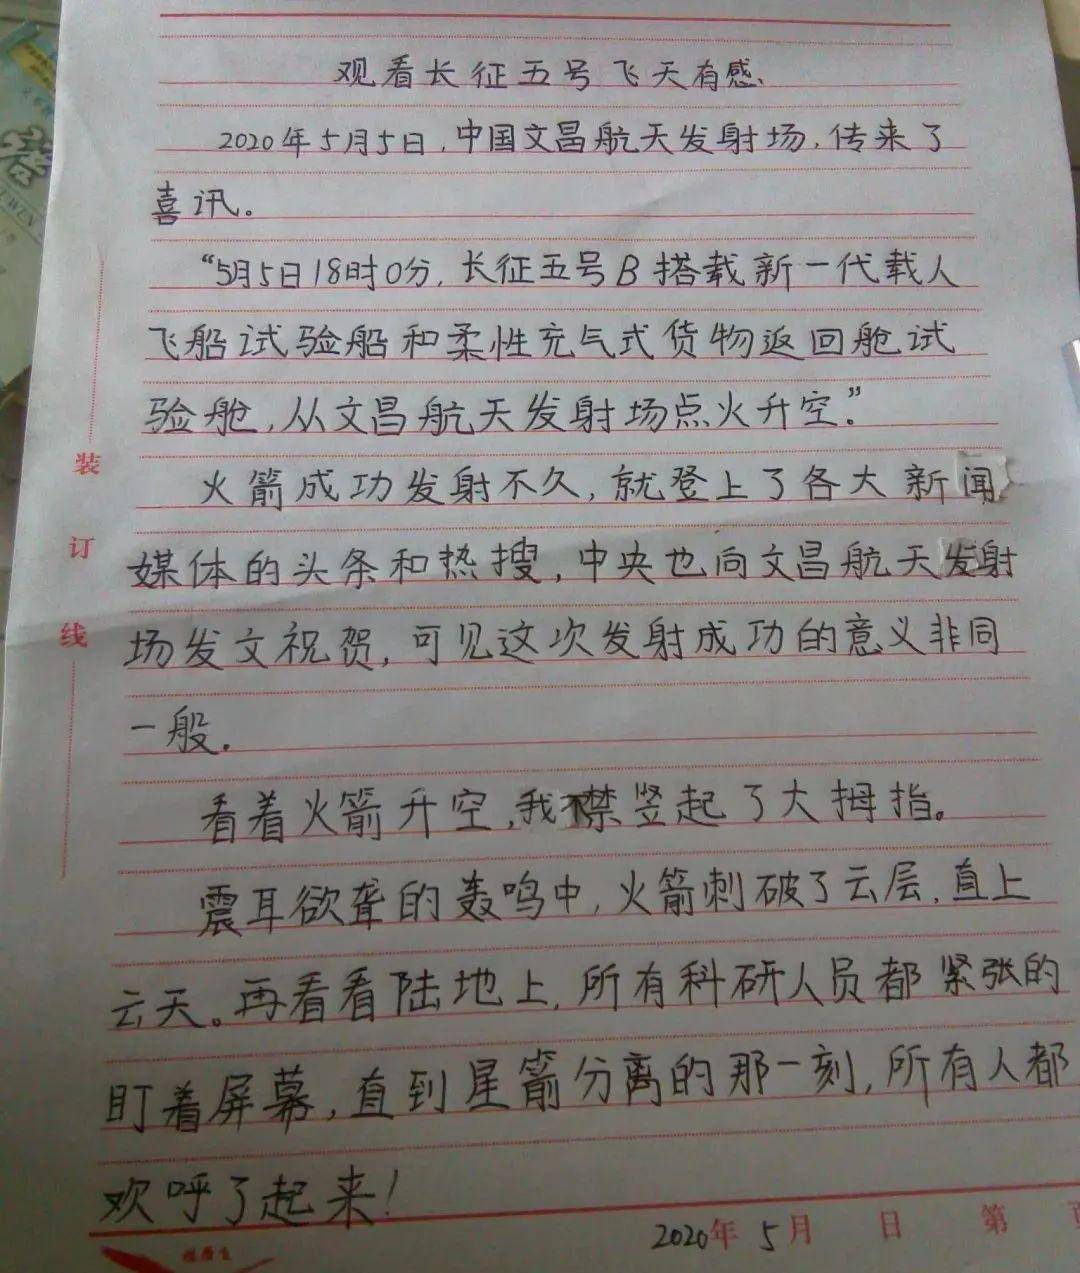 观看长征五号飞天有感、
2020年5月5日,中国文昌航天发射场,传来了
喜讯。
“5月5日18时0分,长征五号B搭载新一代载人
飞船试验船和柔性充气式货物返回舱试
验舱,从文昌航天发射场点火升空。”
火箭成功发射不久,就登上了各大新闻
媒体的头条和热搜,中央也向文昌航天发射
场发文祝贺,可见这次发射成功的意义非同
一般.
看着火箭升空,我不禁竖起了大拇指。
震耳欲聋的轰鸣中,火箭刺破了云层,直上
云天。再看看陆地上,所有科研人员都紧张的
盯着屏幕,直到星箭分离的那一刻,所有人都
欢呼了起来!
装
订
线
2020年5月 日 第